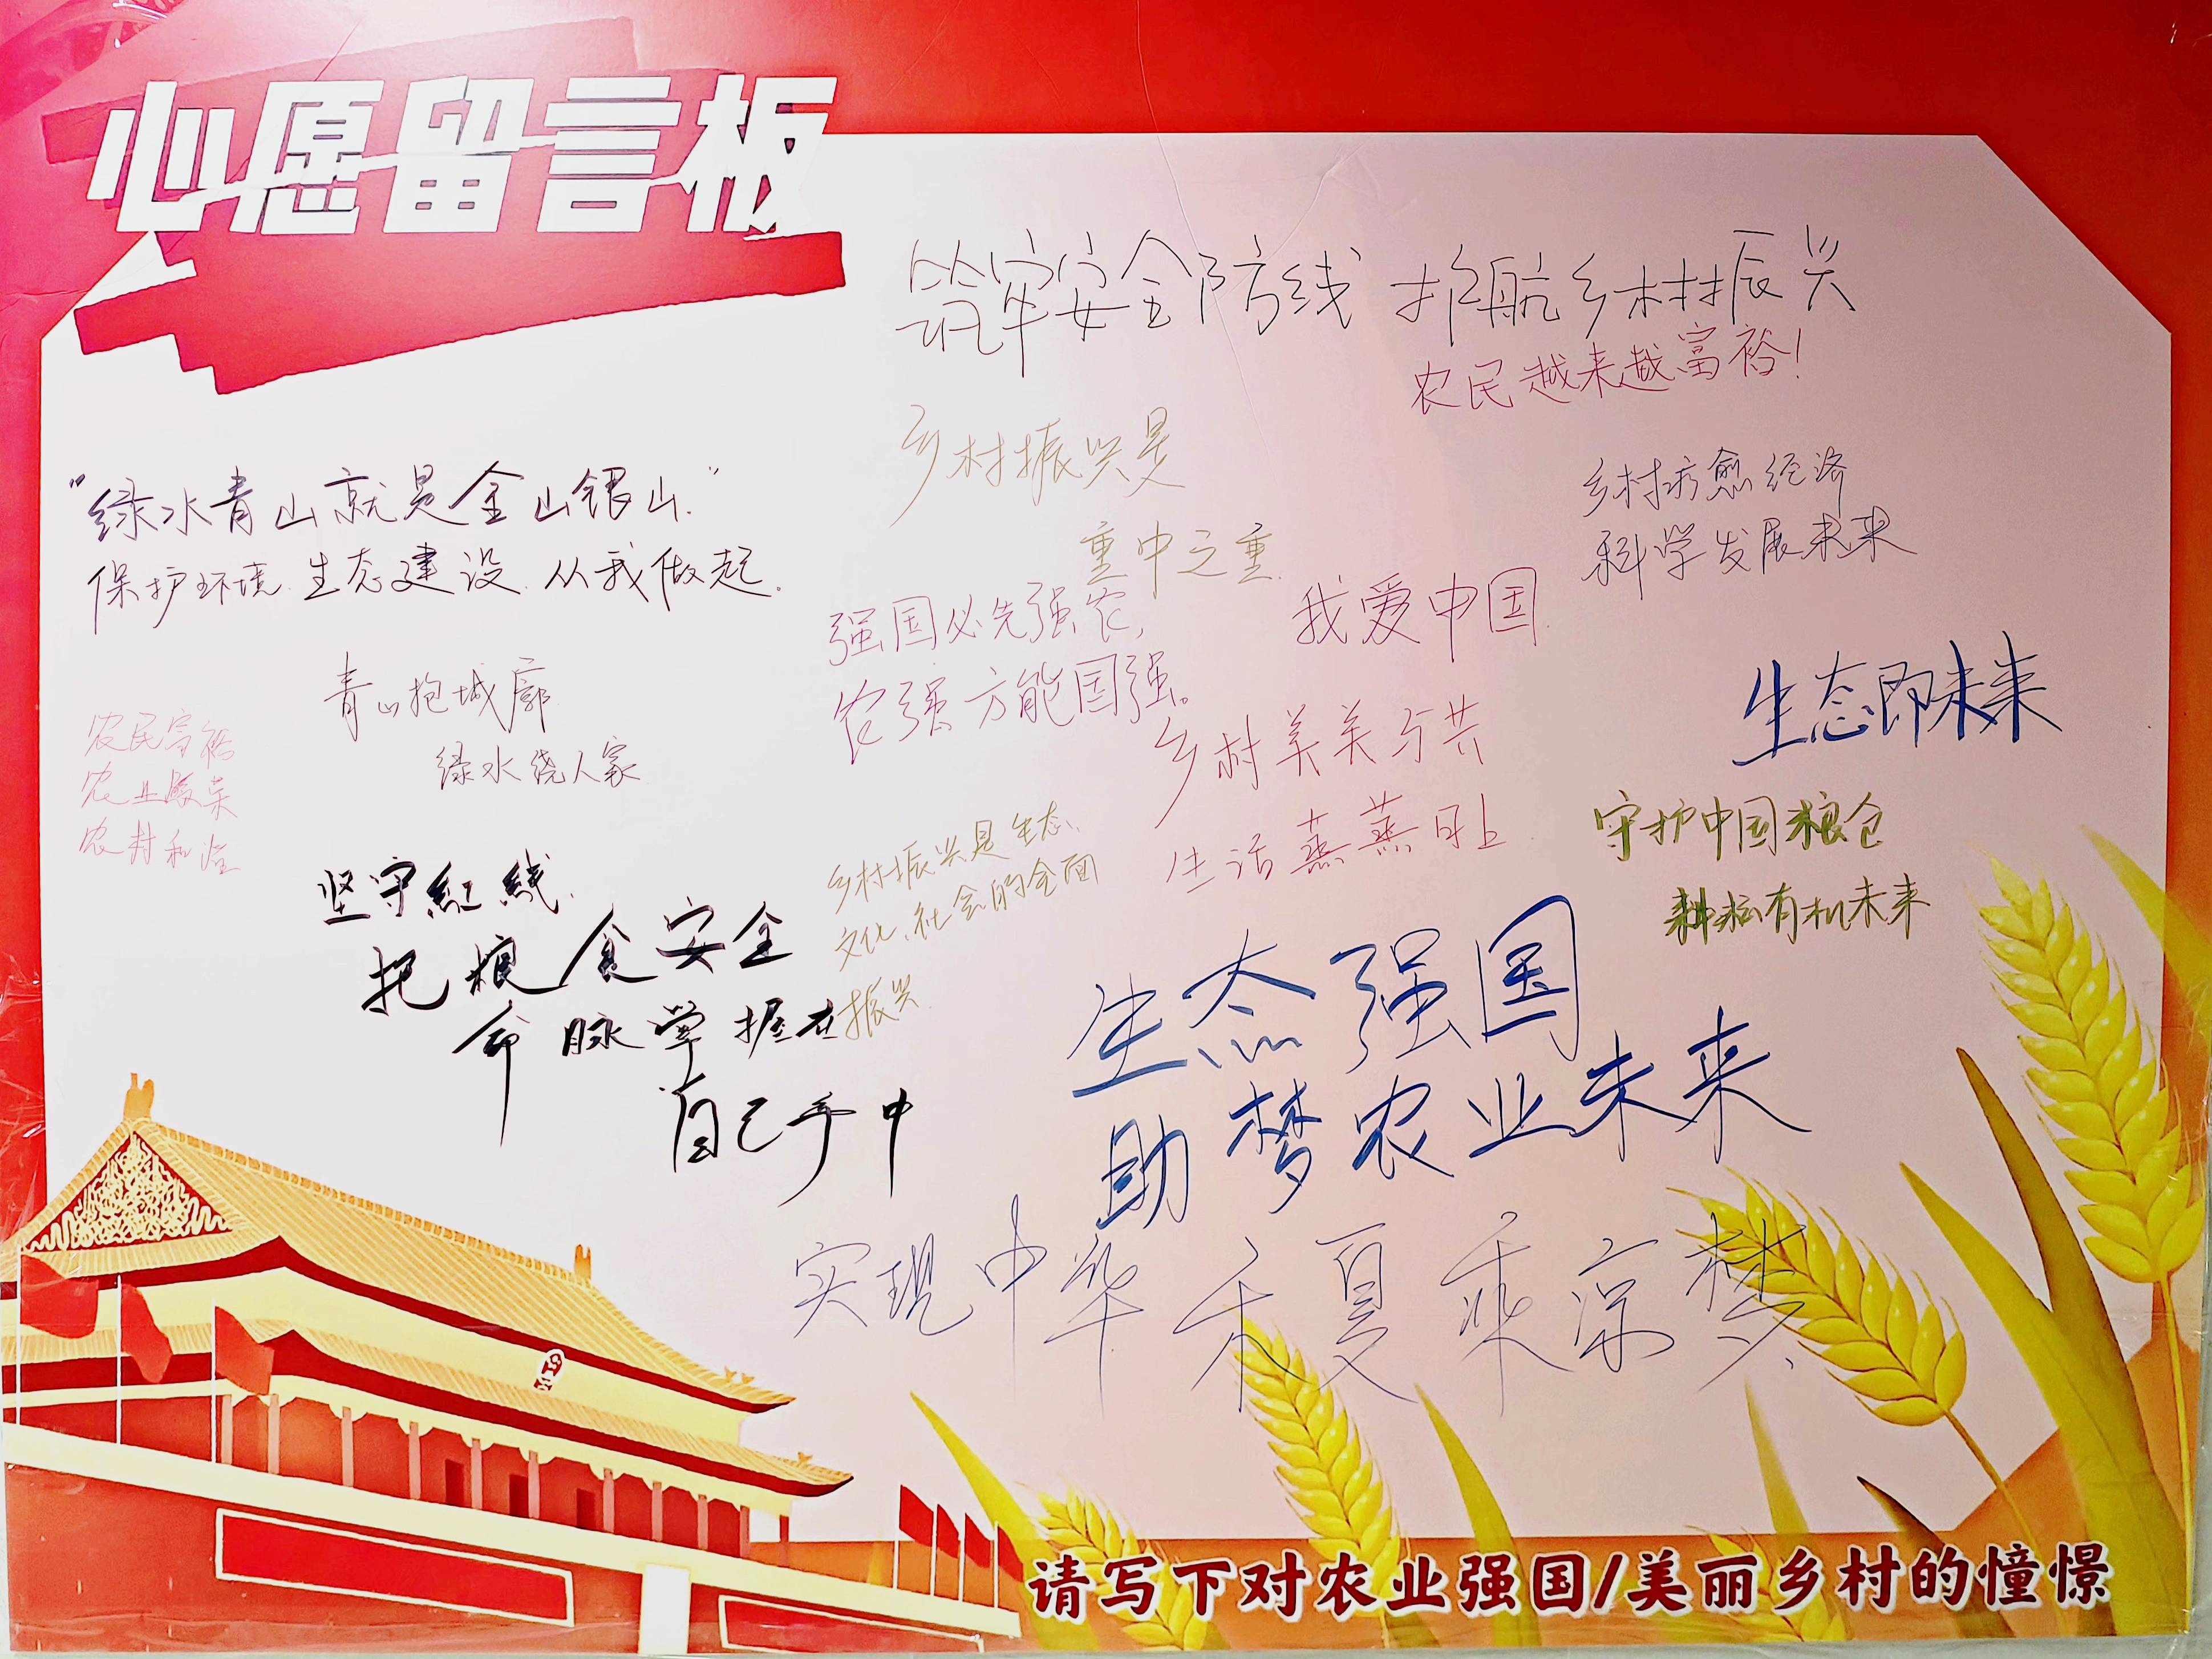 心愿留言板
筑牢安全防线 护航乡村振兴
农民越来越富裕!
乡村振兴是
重中之重
乡村疗愈经济
科学发展未来
"绿水青山就是金山银山."
保护环境.生态建设.从我做起.
强国必先强农,
农强方能国强。
我爱中国.
青山抱城廓
绿水绕人家
农民富裕
农业
农村和谐
乡村美美与共
生活蒸蒸日上
生态即未来
守护中国粮仓
耕耘有机未来
乡村振兴是生态、
文化、社会的全面
振兴.
坚守红线.
把粮食安全
命脉掌握在
自己手中
生态强国
助梦农业未来
实现中华禾夏乘凉梦.
请写下对农业强国/美丽乡村的憧憬